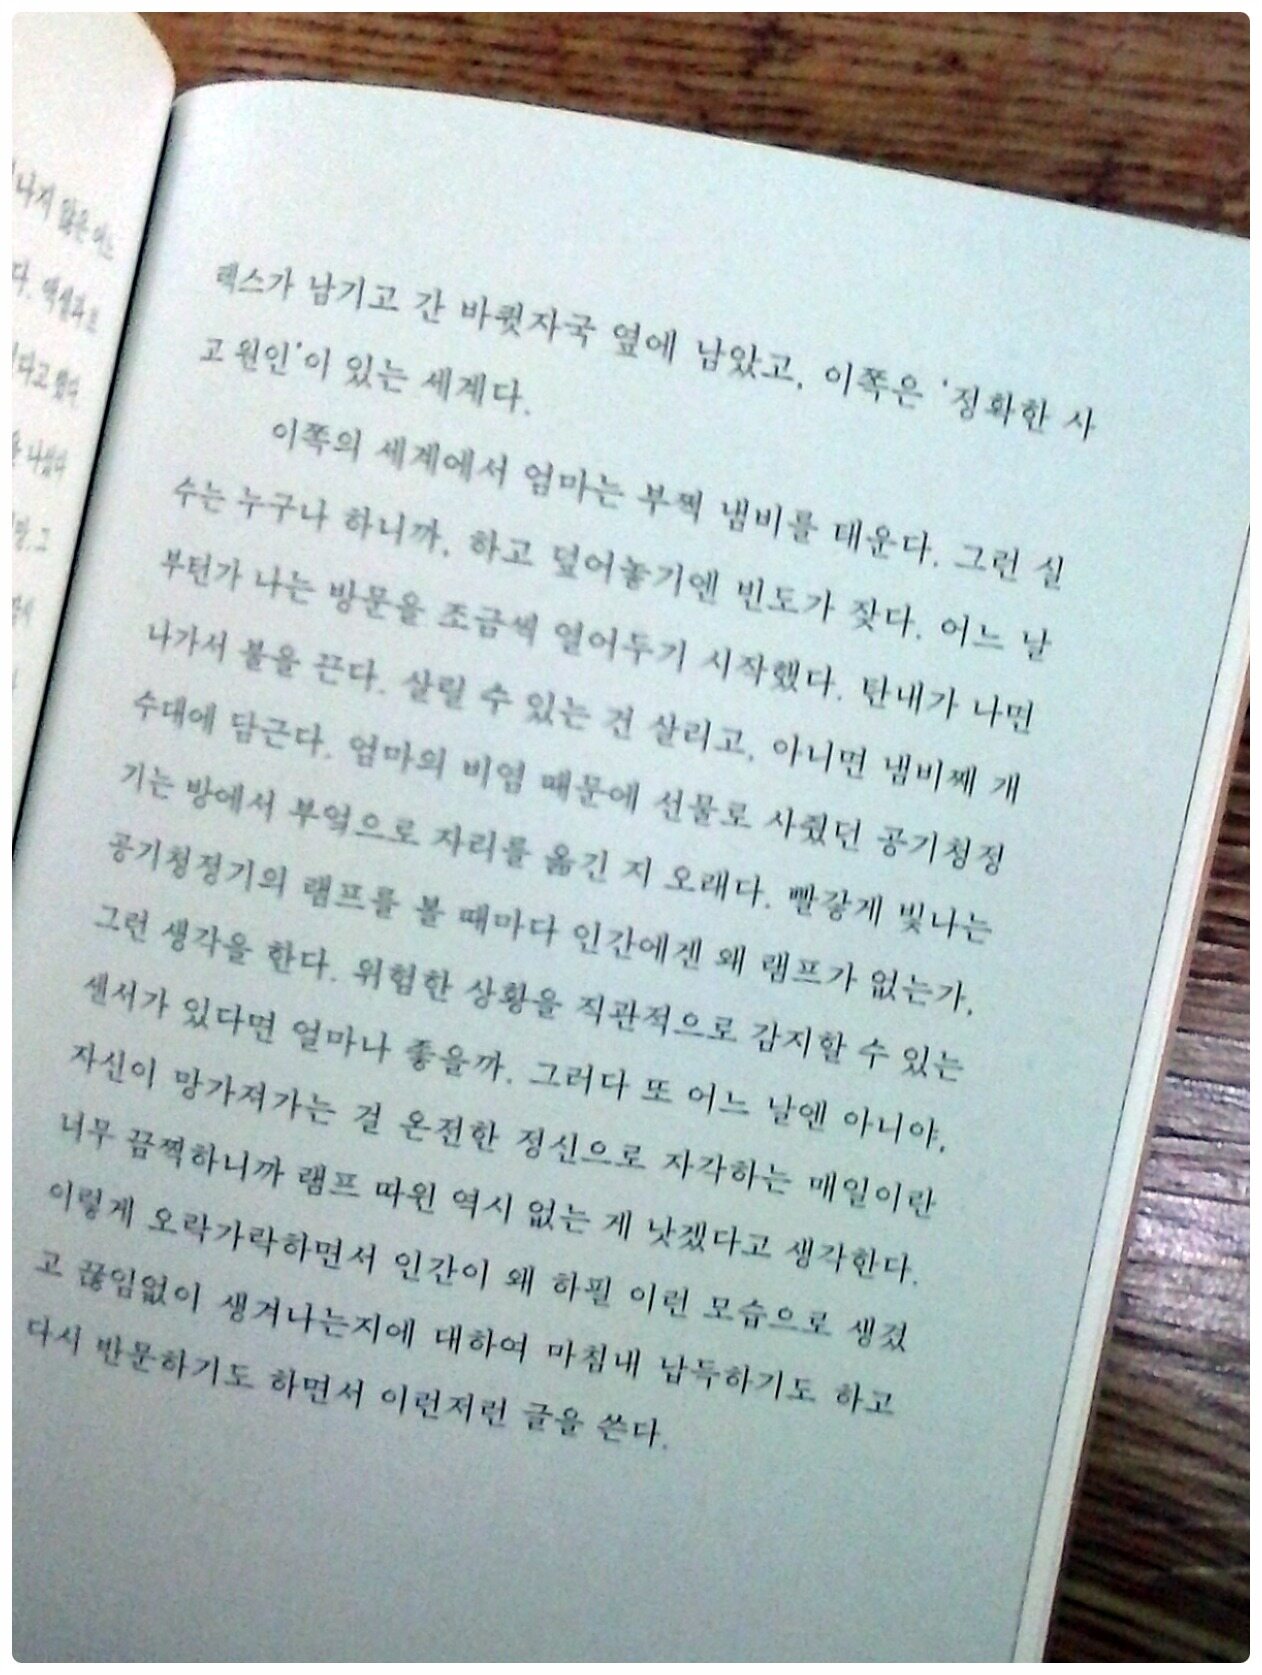 나지 않은 어느
다. 
다고 했다.
렉스가 남기고 간 바큇자국 옆에 남았고, 이쪽은 ‘정확한 사
고 원인’이 있는 세계다.
이쪽의 세계에서 엄마는 부쩍 냄비를 태운다. 그런 실
수는 누구나 하니까, 하고 덮어놓기엔 빈도가 잦다. 어느 날
부턴가 나는 방문을 조금씩 열어두기 시작했다. 탄내가 나면
나가서 불을 끈다. 살릴 수 있는 건 살리고, 아니면 냄비째 개
수대에 담근다. 엄마의 비염 때문에 선물로 사줬던 공기청정
기는 방에서 부엌으로 자리를 옮긴 지 오래다. 빨갛게 빛나는
공기청정기의 램프를 볼 때마다 인간에겐 왜 램프가 없는가,
그런 생각을 한다. 위험한 상황을 직관적으로 감지할 수 있는
센서가 있다면 얼마나 좋을까. 그러다 또 어느 날엔 아니야,
자신이 망가져가는 걸 온전한 정신으로 자각하는 매일이란
너무 끔찍하니까 램프 따윈 역시 없는 게 낫겠다고 생각한다.
이렇게 오락가락하면서 인간이 왜 하필 이런 모습으로 생겼
고 끊임없이 생겨나는지에 대하여 마침내 납득하기도 하고
다시 반문하기도 하면서 이런저런 글을 쓴다.